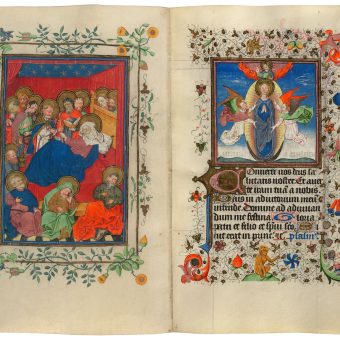 Conuerte nos deus sa
lutaris noster Et auer
te iram tuā a nobis
Deus in adiutorium meū
intende Domine ad adiuuan
dum me festina Gloria
patri et filio et spiri sco
Sicut erat in prinᶜ